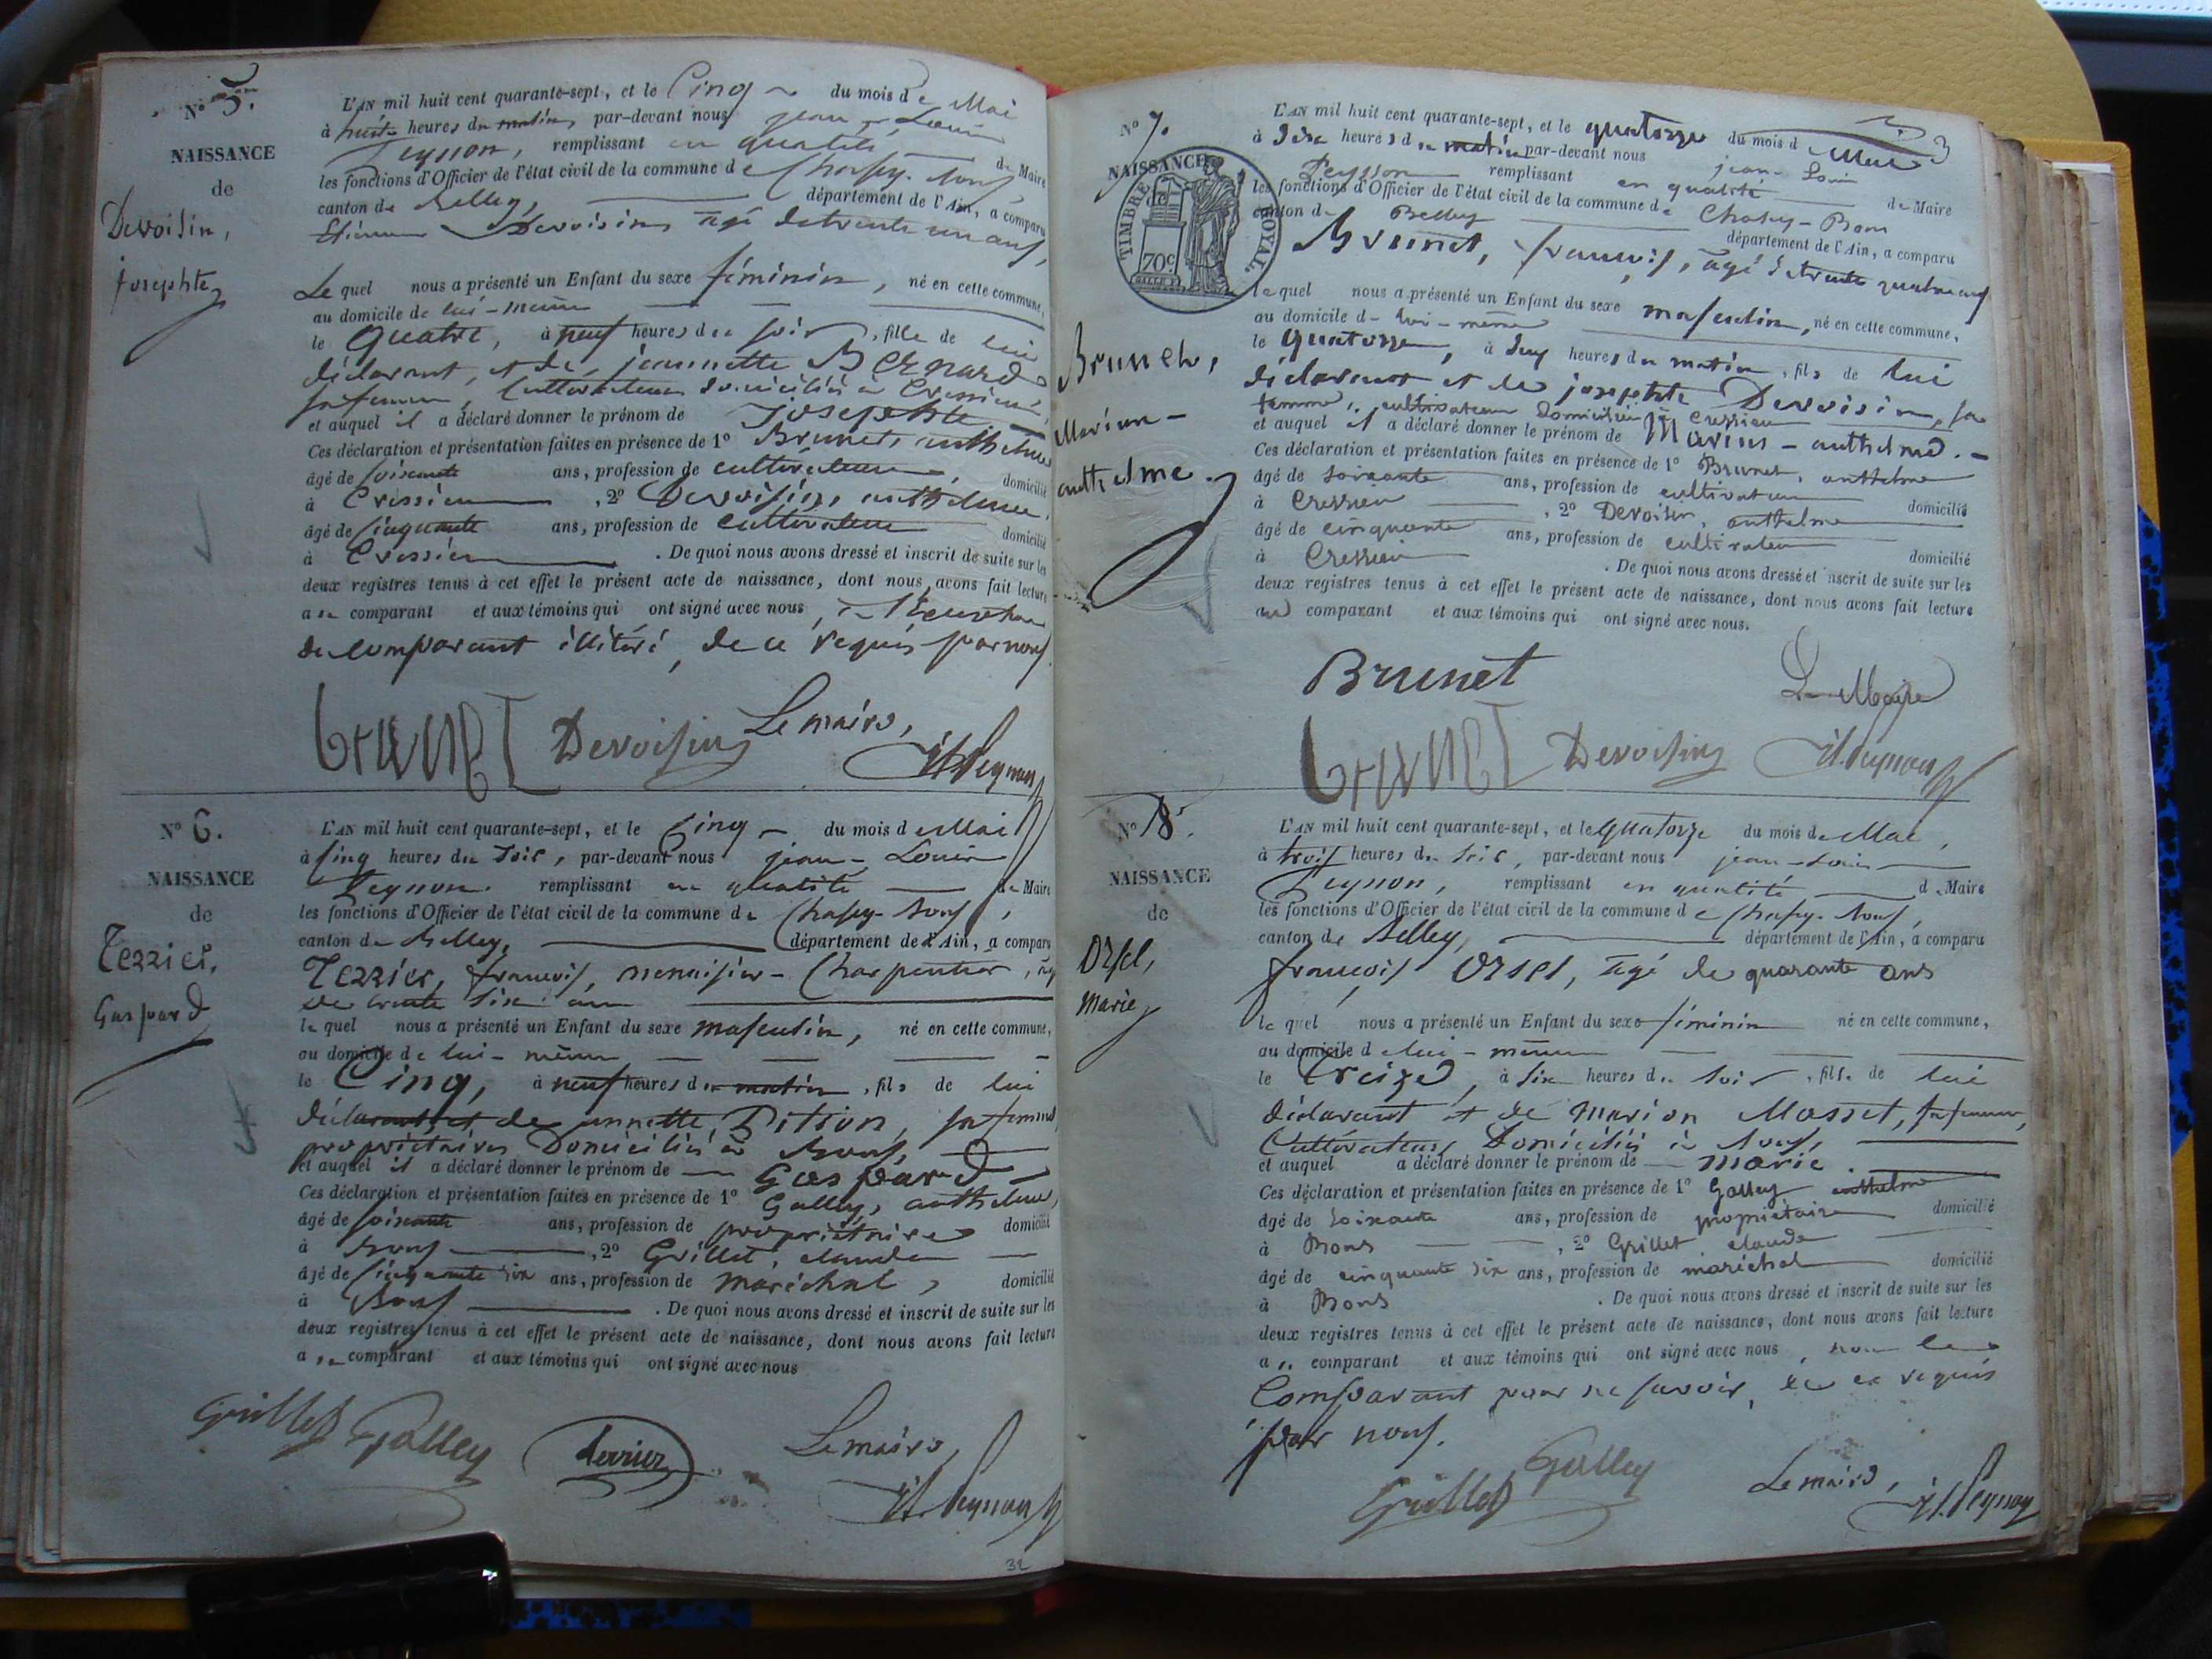 N° 5.
NAISSANCE
de
Devoisin,
josephte
L'AN mil huit cent quarante-sept, et le Cinq du mois de Mai
à huit heures du matin, par-devant nous jean-Louis
Peysson, remplissant en qualité de Maire
les fonctions d'Officier de l'état civil de la commune de Chasey-bons,
canton de Belley, département de l'Ain, a comparu
Etienne Devoisin, agé de trente un ans,
Le quel nous a présenté un Enfant du sexe féminin, né en cette commune,
au domicile de lui-même
le Quatre, à neuf heures du soir, fille de lui
déclarant, et de jeannette Bernard
sa femme, cultivateurs domiciliés à Cressieu,
et auquel il a déclaré donner le prénom de josephte
Ces déclaration et présentation faites en présence de 1° Brunet, anthelme
âgé de soixante ans, profession de cultivateur, domicilié
à Cressieu, 2° Devoisin, anthelme,
âgé de cinquante ans, profession de cultivateur domicilié
à Cressieu. De quoi nous avons dressé et inscrit de suite sur les
deux registres tenus à cet effet le présent acte de naissance, dont nous avons fait lecture
au comparant et aux témoins qui ont signé avec nous,
du comparant illitéré, de ce requis par nous.
brunet Devoisin Le maire,
J.L. Peysson
N° 6.
NAISSANCE
de
Terrier,
Gaspard
L'AN mil huit cent quarante-sept, et le Cinq du mois de Mai
à cinq heures du soir, par-devant nous jean-Louis
Peysson, remplissant en qualité de Maire
les fonctions d'Officier de l'état civil de la commune de Chasey-bons,
canton de Belley, département de l'Ain, a comparu
Terrier, francois, menuisier-Charpentier, agé
de trente six ans
le quel nous a présenté un Enfant du sexe masculin, né en cette commune,
au domicile de lui-même
le Cinq, à neuf heures du matin, fils de lui
déclarant et de annette Pition, sa femme
propriétaires Domiciliés à Bons,
et auquel il a déclaré donner le prénom de Gaspard
Ces déclaration et présentation faites en présence de 1° Galley, anthelme,
âgé de soixante ans, profession de propriétaire domicilié
à Bons, 2° Grillet, claude
âgé de cinquante six ans, profession de maréchal, domicilié
à Bons. De quoi nous avons dressé et inscrit de suite sur les
deux registres tenus à cet effet le présent acte de naissance, dont nous avons fait lecture
au comparant et aux témoins qui ont signé avec nous
Grillet Galley terrier Le maire,
J.L. Peysson
32
3
N° 7.
NAISSANCE
de
TIMBRE ROYAL.
70c
Brunet,
Marius-
anthelme.
L'AN mil huit cent quarante-sept, et le quatorze du mois de Mai
à dix heures du matin par-devant nous jean-Louis
Peysson remplissant en qualité de Maire
les fonctions d'Officier de l'état civil de la commune de Chasey-Bons
canton de Belley département de l'Ain, a comparu
Brunet, francois, agé de trente quatre ans
le quel nous a présenté un Enfant du sexe masculin, né en cette commune,
au domicile de lui-même
le quatorze, à deux heures du matin, fils de lui
déclarant et de josephte Devoisin, sa
femme, cultivateurs domiciliés à Cressieu
et auquel il a déclaré donner le prénom de Marius-anthelme.
Ces déclaration et présentation faites en présence de 1° Brunet, anthelme
âgé de soixante ans, profession de cultivateur domicilié
à Cressieu, 2° Devoisin, anthelme
âgé de cinquante ans, profession de cultivateur domicilié
à Cressieu. De quoi nous avons dressé et inscrit de suite sur les
deux registres tenus à cet effet le présent acte de naissance, dont nous avons fait lecture
au comparant et aux témoins qui ont signé avec nous.
Brunet Le Maire
brunet Devoisin J.L. Peysson
N° 8.
NAISSANCE
de
Orsel,
Marie
L'AN mil huit cent quarante-sept, et le Quatorze du mois de Mai,
à trois heures du soir, par-devant nous jean-Louis
Peysson, remplissant en qualité de Maire
les fonctions d'Officier de l'état civil de la commune de Chasey-bons,
canton de Belley, département de l'Ain, a comparu
francois Orsel, agé de quarante ans
le quel nous a présenté un Enfant du sexe féminin né en cette commune,
au domicile de lui-même
le treize, à six heures du soir, fille de lui
déclarant et de Marion Mosset, sa femme,
Cultivateurs Domiciliés à Bons,
et auquel a déclaré donner le prénom de marie.
Ces déclaration et présentation faites en présence de 1° Galley anthelme
âgé de soixante ans, profession de propriétaire domicilié
à Bons, 2° Grillet claude
âgé de cinquante six ans, profession de maréchal domicilié
à Bons. De quoi nous avons dressé et inscrit de suite sur les
deux registres tenus à cet effet le présent acte de naissance, dont nous avons fait lecture
au comparant et aux témoins qui ont signé avec nous, non le
Comparant pour ne savoir, de ce requis
par nous.
Grillet Galley Le maire,
J.L. Peysson